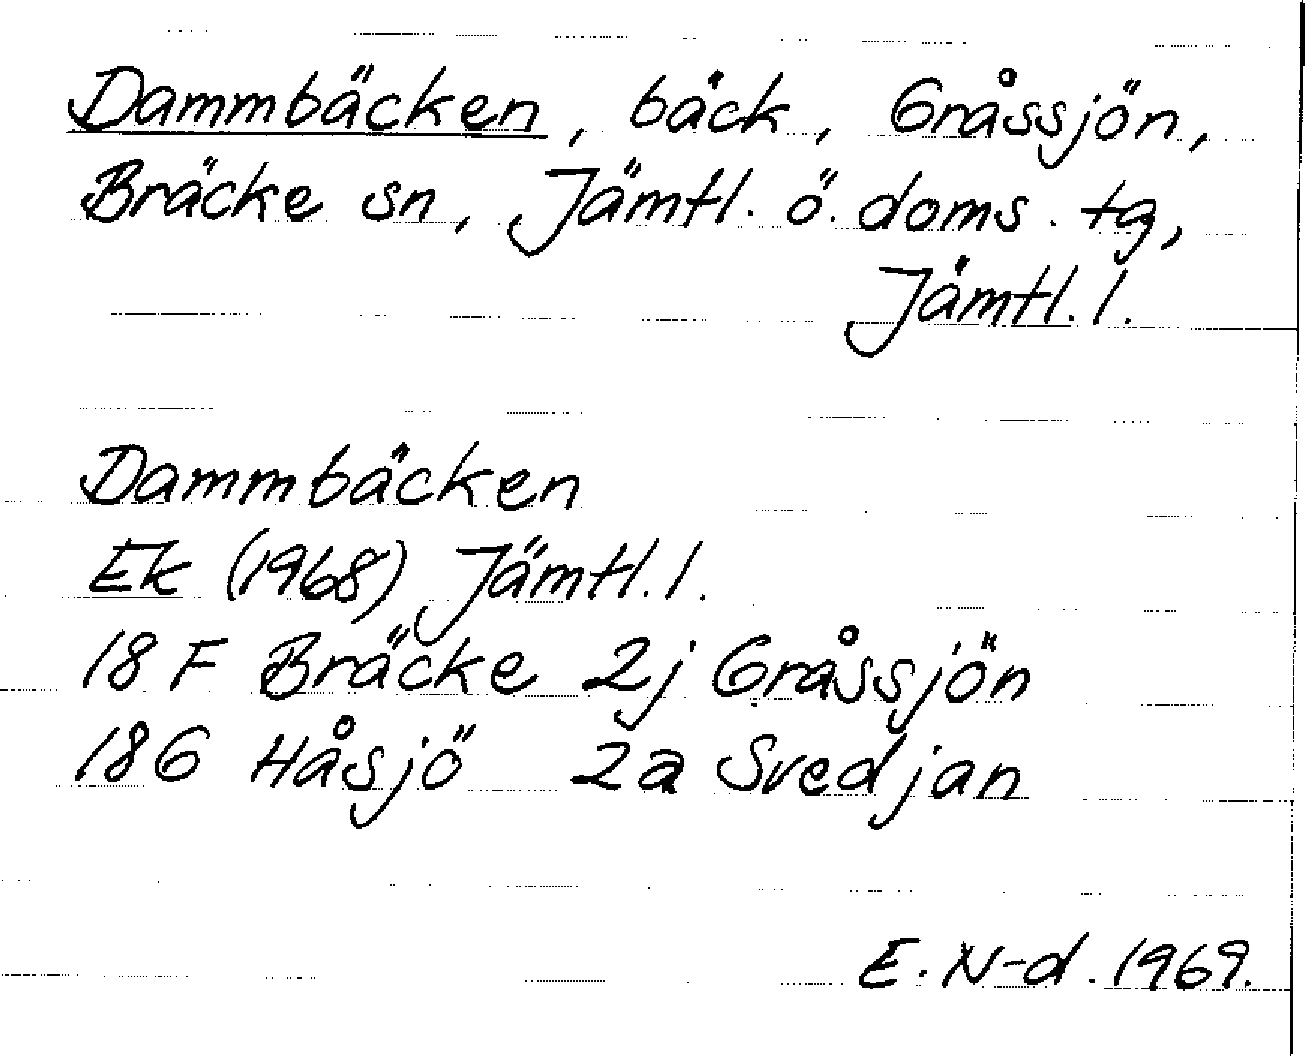 Dammbäcken, bäck, Gråssjön,
Bräcke sn, Jämtl. ö. doms. tg,
Jämtl. l.
Dammbäcken
Ek (1968) Jämtl. l.
18 F Bräcke 2j Gråssjön
18G Håsjö 2a Svedjan
E. N-d. 1969.